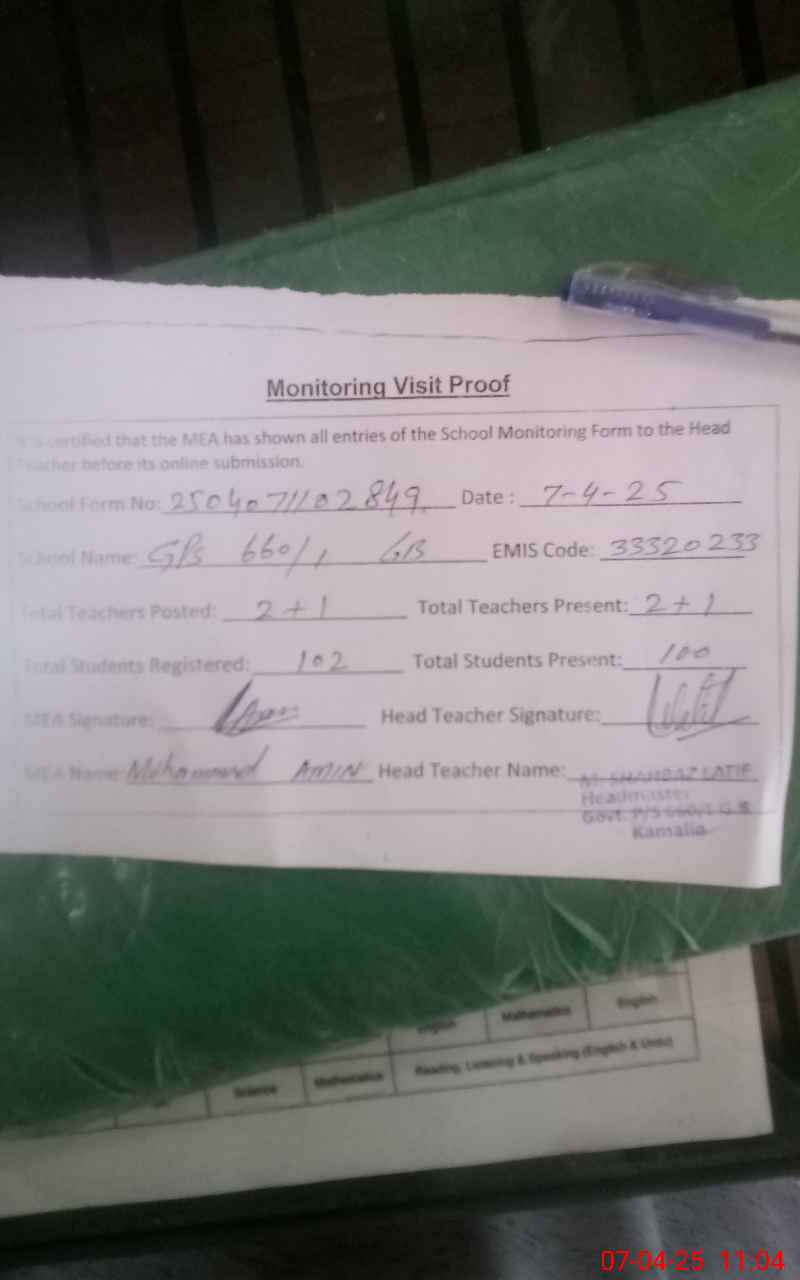 Monitoring Visit Proof
It is certified that the MEA has shown all entries of the School Monitoring Form to the Head
Teacher before its online submission.
School Form No: 2504071102849 Date : 7-4-25
School Name: GPS 660/1 GB EMIS Code: 33320233
Total Teachers Posted: 2+1 Total Teachers Present: 2+1
Total Students Registered: 102 Total Students Present: 100
MEA Signature: Head Teacher Signature:
MEA Name: Mohammad AMIN Head Teacher Name: M. SHAHBAZ LATIF
Headmaster
Govt. P/S 660/1 G.B
Kamalia
English Mathematics English
Science Mathematics Reading, Listening & Speaking (English & Urdu)
07-04-25 11:04